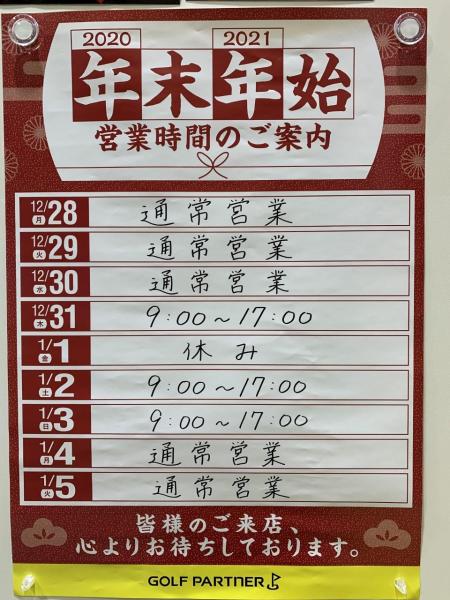 2020 2021
年末年始
営業時間のご案内
12/28 月 通常営業
12/29 火 通常営業
12/30 水 通常営業
12/31 木 9:00~17:00
1/1 金 休み
1/2 土 9:00~17:00
1/3 日 9:00~17:00
1/4 月 通常営業
1/5 火 通常営業
皆様のご来店、
心よりお待ちしております。
GOLF PARTNER